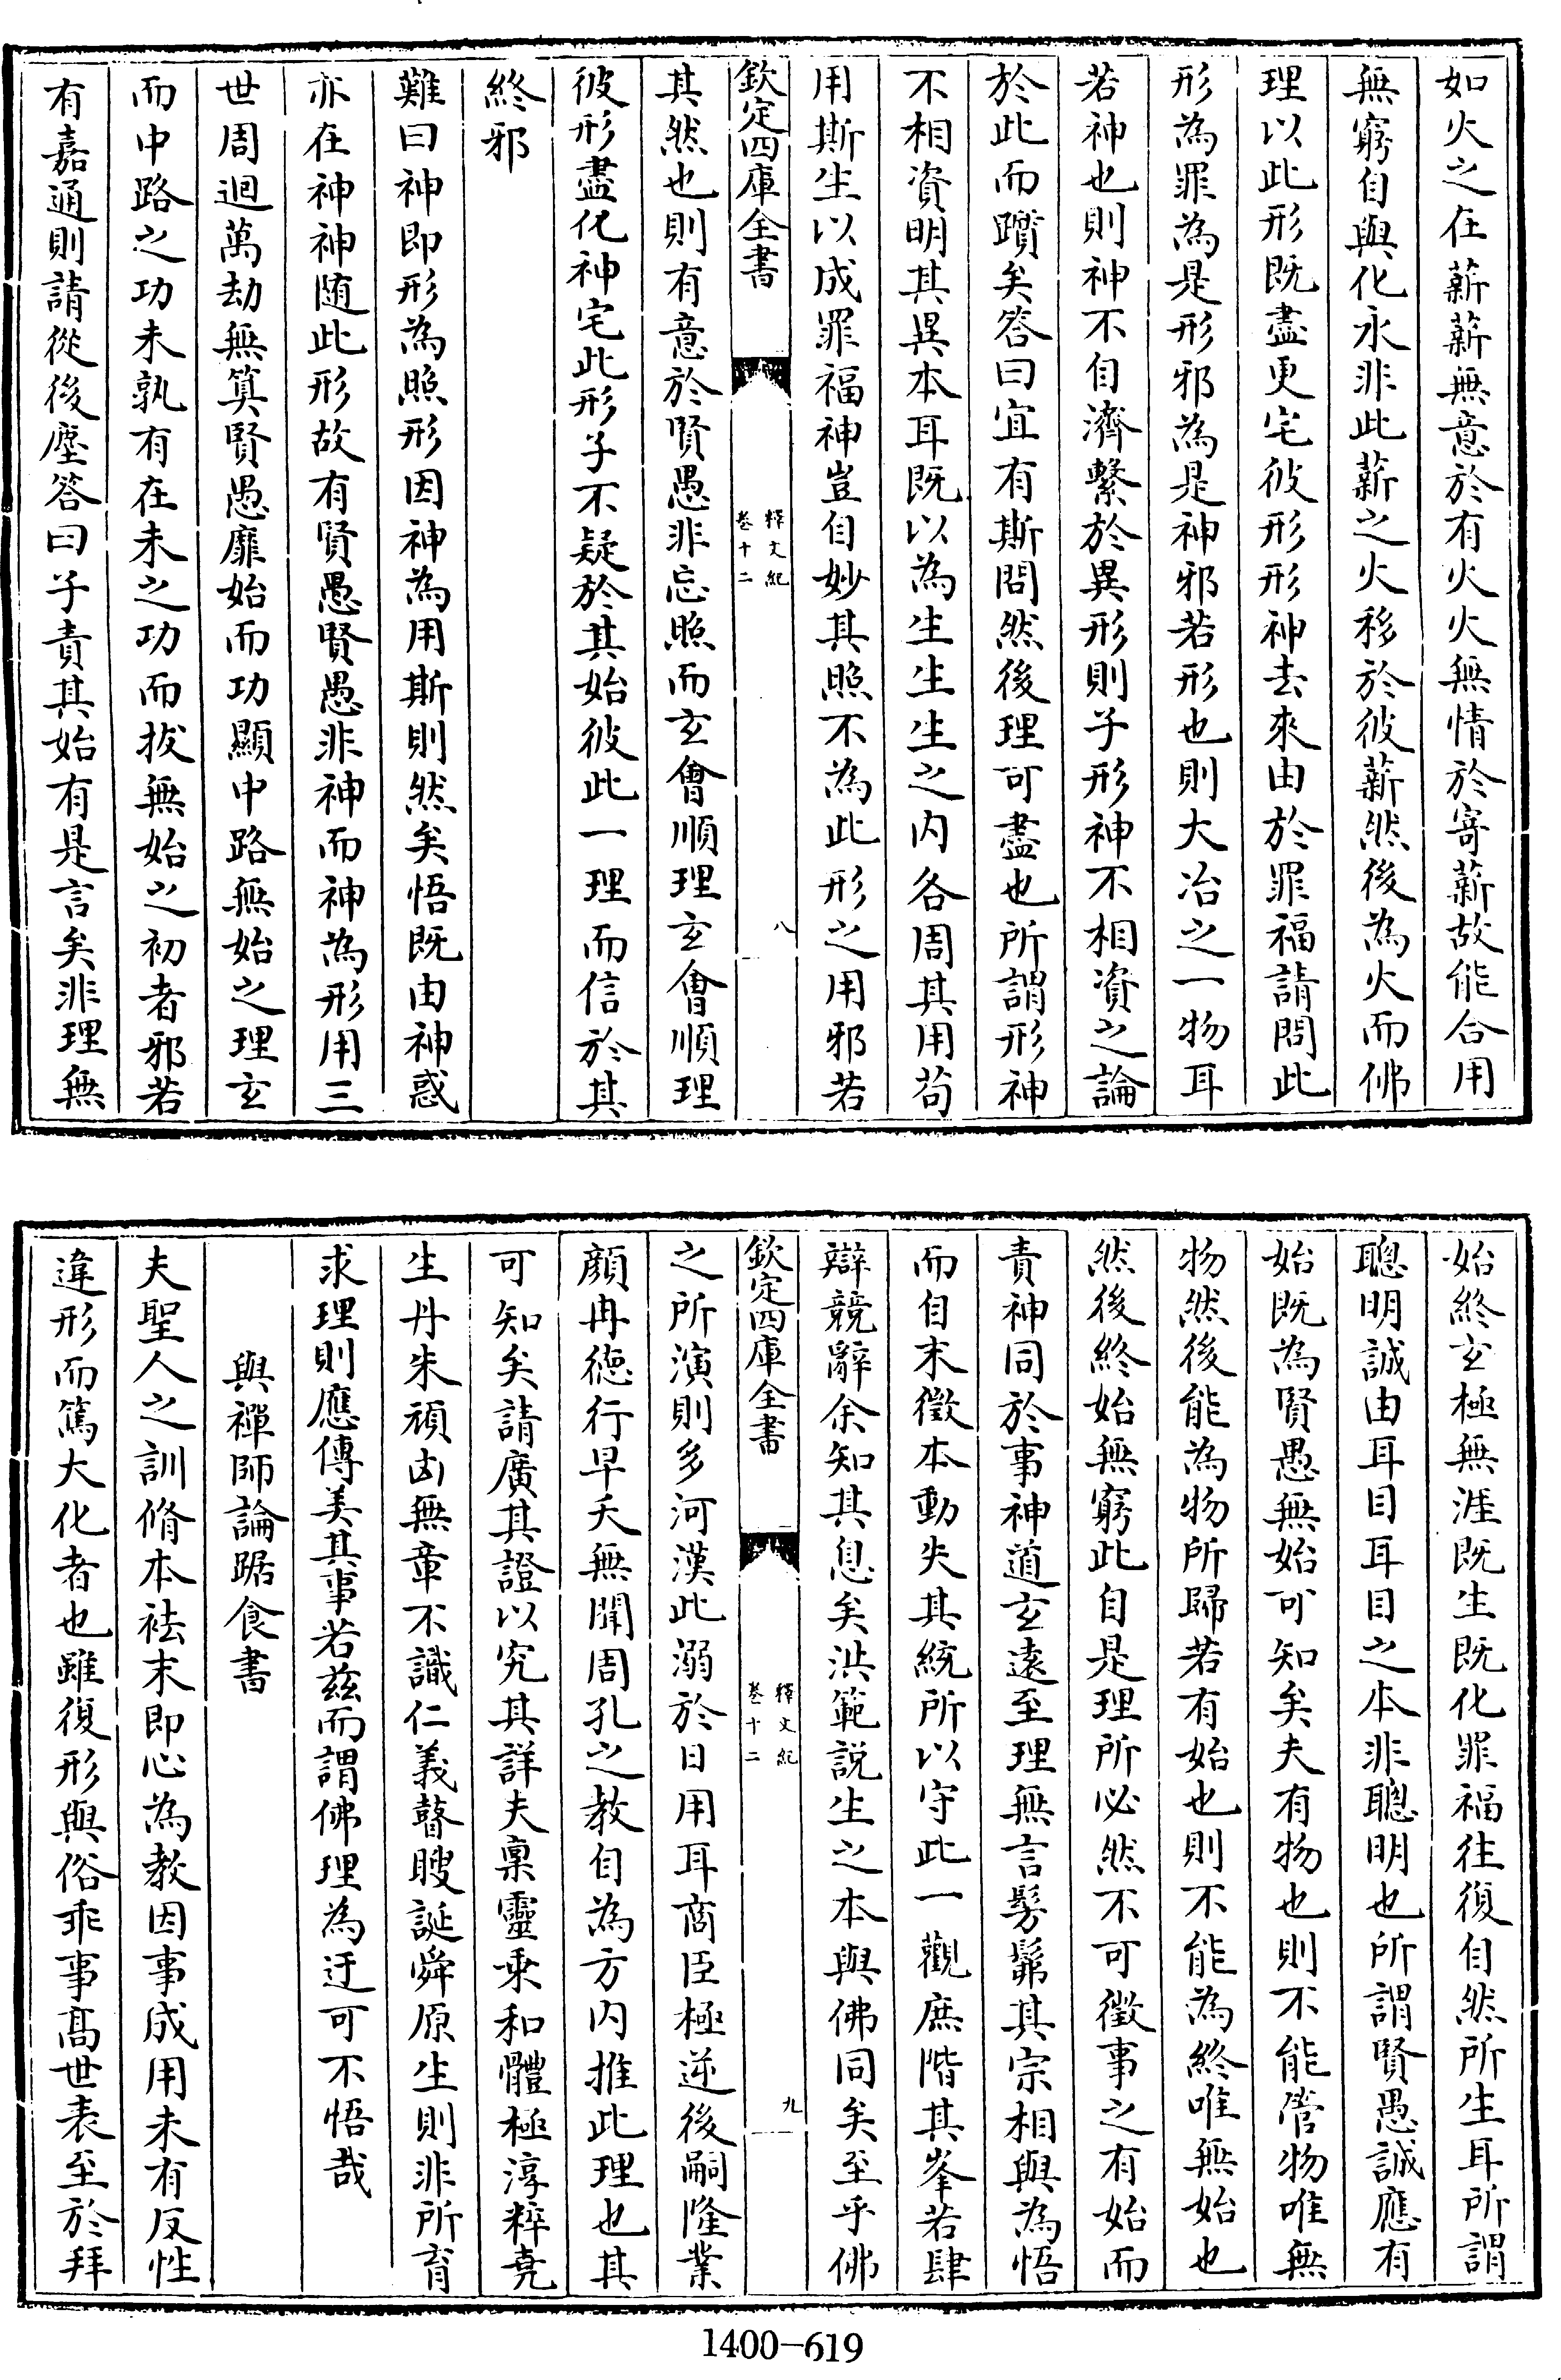 如火之在薪薪無意於有火火無情於寄薪故能合用
無窮自與化永非此薪之火移於彼薪然後為火而佛
理以此形既盡更宅彼形形神去來由於罪福請問此
形為罪為是形邪為是神邪若形也則大冶之一物耳
若神也則神不自濟繫於異形則子形神不相資之論
於此而躓矣答曰宜有斯問然後理可盡也所謂形神
不相資明其異本耳既以為生生生之内各周其用苟
用斯生以成罪福神豈自妙其照不為此形之用邪若
欽定四庫全書
釋文紀
卷十二
八
其然也則有意於賢愚非忘照而玄會順理玄會順理
彼形盡化神宅此形子不疑於其始彼此一理而信於其
終邪
難曰神即形為照形因神為用斯則然矣悟既由神惑
亦在神神随此形故有賢愚賢愚非神而神為形用三
世周迴萬劫無筭賢愚靡始而功顯中路無始之理玄
而中路之功未孰有在未之功而拔無始之初者邪若
有嘉通則請從後塵答曰子責其始有是言矣非理無
始終玄極無涯既生既化罪福往復自然所生耳所謂
聰明誠由耳目耳目之本非聰明也所謂賢愚誠應有
始既為賢愚無始可知矣夫有物也則不能管物唯無
物然後能為物所歸若有始也則不能為終唯無始也
然後終始無窮此自是理所必然不可徵事之有始而
責神同於事神道玄遠至理無言髣髴其宗相與為悟
而自末徵本動失其統所以守此一觀庶階其峯若肆
辯競辭余知其息矣洪範説生之本與佛同矣至乎佛
欽定四庫全書
釋文紀
卷十二
九
之所演則多河漢此溺於日用耳商臣極逆後嗣隆業
顔冉德行早夭無聞周孔之教自為方内推此理也其
可知矣請廣其證以究其詳夫稟靈乘和體極淳粹堯
生丹朱頑凶無章不識仁義瞽瞍誕舜原生則非所育
求理則應傳美其事若兹而謂佛理為迂可不悟哉
與禪師論踞食書
夫聖人之訓脩本祛末即心為教因事成用未有反性
違形而篤大化者也雖復形與俗乖事髙世表至於拜
1400-619